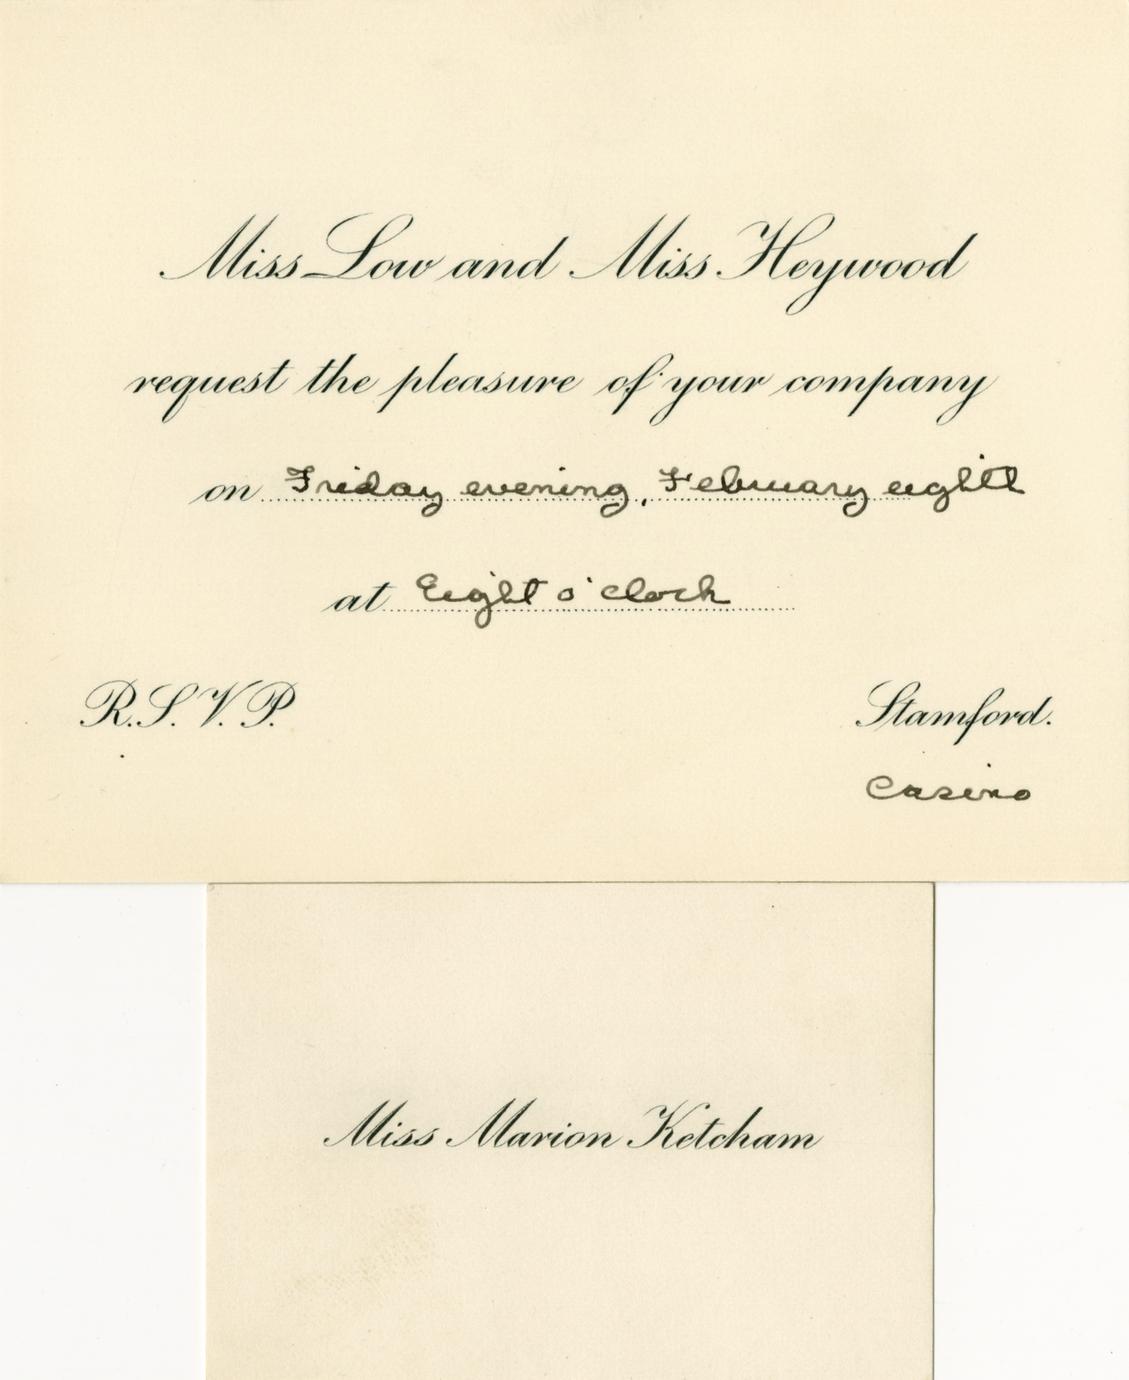 Miss Low and Miss Heywood
request the pleasure of your company
on Friday evening, February eighth
at Eight o'clock
R.S.V.P.
Stamford.
Casino
Miss Marion Ketcham